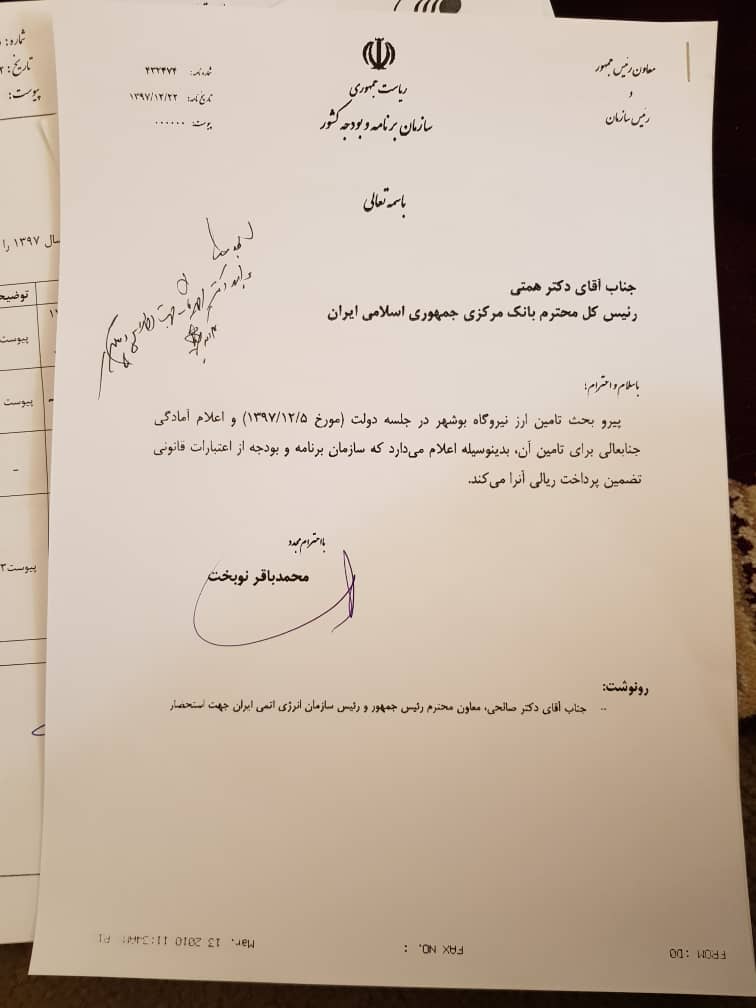 ریاست جمهوری
سازمان برنامه و بودجه کشور
معاون رئیس جمهور
و
رئیس سازمان
شماره نامه: ۴۳۲۴۷۴
تاریخ نامه: ۱۳۹۷/۱۲/۲۲
پیوست: ۰۰۰۰۰۰
باسمه تعالی
جناب آقای دکتر همتی
رئیس کل محترم بانک مرکزی جمهوری اسلامی ایران
باسلام و احترام؛
پیرو بحث تامین ارز نیروگاه بوشهر در جلسه دولت (مورخ ۱۳۹۷/۱۲/۵) و اعلام آمادگی
جنابعالی برای تامین آن، بدینوسیله اعلام می‌دارد که سازمان برنامه و بودجه از اعتبارات قانونی
تضمین پرداخت ریالی آنرا می‌کند.
با احترام مجدد
محمدباقر نوبخت
رونوشت:
.. جناب آقای دکتر صالحی، معاون محترم رئیس جمهور و رئیس سازمان انرژی اتمی ایران جهت استحضار
FROM :DO
FAX NO. :
Mar. 13 2010 11:34AM P1
شماره:
تاریخ:
پیوست:
سال ۱۳۹۷ را
پیوست
پیوست
پیوست۳